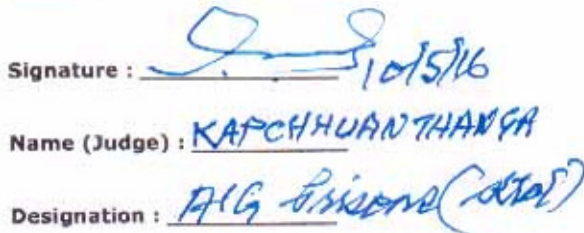 Signature : 10/5/16
Name (Judge) : KAPCHHUANTHANGA
Designation : AIG Prisons